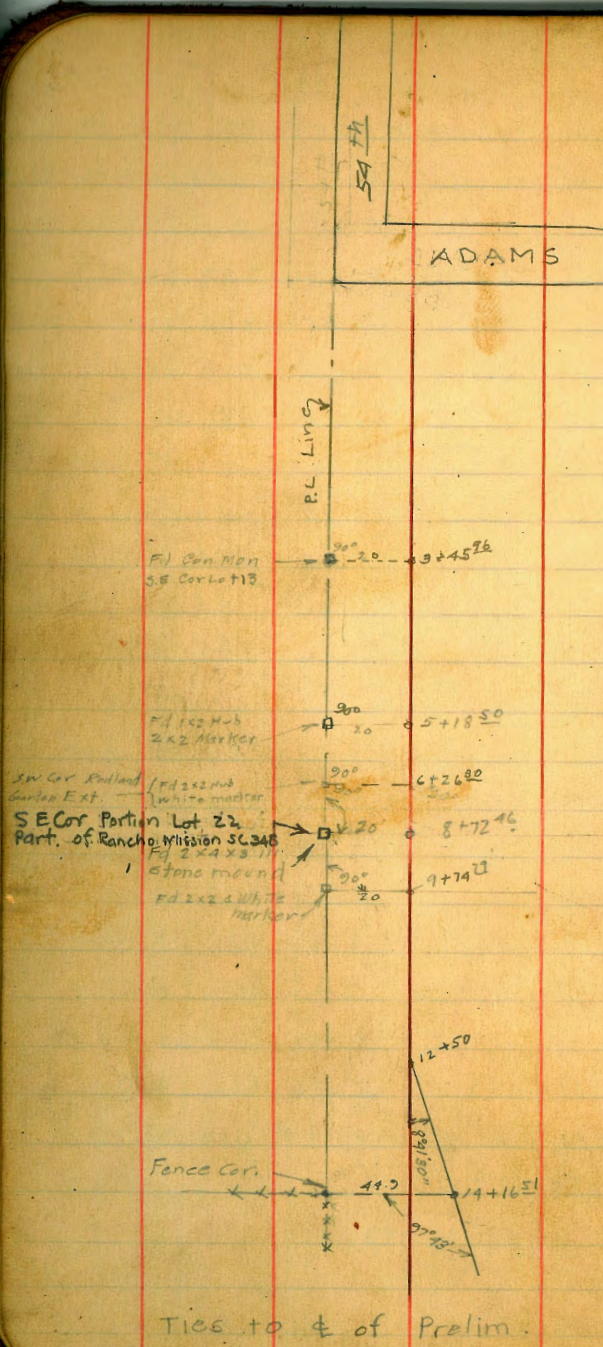 54 th
ADAMS
P.L Line
Fd Con Mon
S.E Cor Lot 13
90°
20
3+45 96
Fd 2x2 Hub
2x2 Marker
90
20
5+18 50
S.W Cor Redland
Garden Ext
Fd 2x2 Hub
white marker
90°
6+26 80
S E Cor Portion Lot 22
Part. of Rancho Mission SC 348
20
8+72 46
Fd 2x4x3 in
Stone mound
Fd 2x2 & White
marker
90°
20
9+74
12+50
Fence Cor.
44.9
14+16 51
97°43'
Ties to ℄ of Prelim.